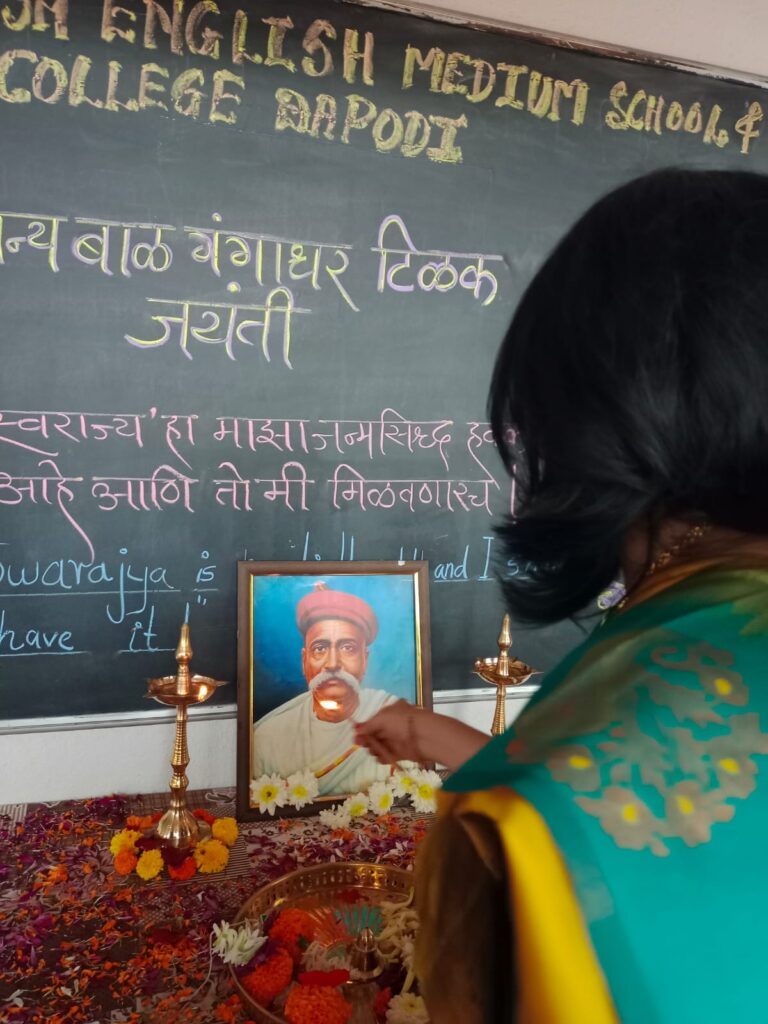 ENGLISH MEDIUM SCHOOL &
COLLEGE DAPODI
बाळ गंगाधर टिळक
जयंती
स्वराज्य' हा माझा जन्मसिध्द
आहे आणि तो मी मिळवणारच
Swarajya is and I
have it!"